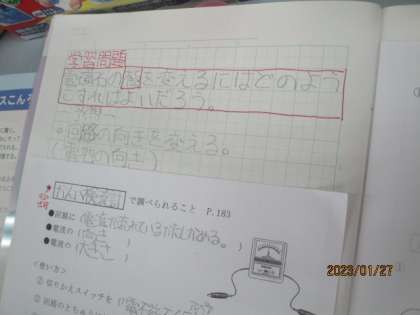 学習問題
電磁石の極を変えるにはどのよう
にすればよいだろう。
予想
回路の向きを変える。
(電流の向き)
スこんろ
かんい検流計 で調べられること P.183
●回路に(電流が流れているかたしかめる。)
●電流の(向き)
●電流の(大きさ)
<使い方>
① 切りかえスイッチを
② 回路のとちゅう
2023/01/27